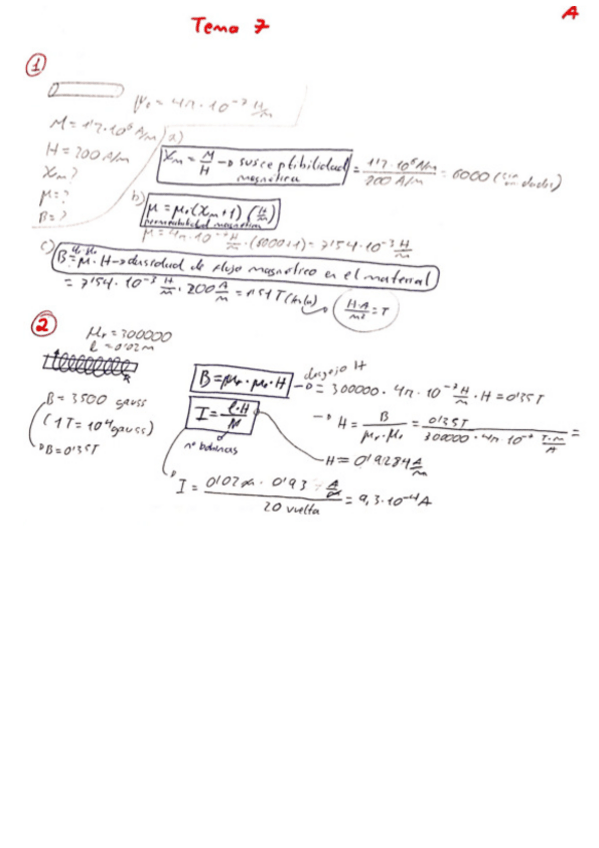 Tema 7
A
1
μ₀ = 4π·10⁻⁷ H/m
M = 1'2·10⁶ A/m
H = 200 A/m
Xm?
μ = ?
B = ?
a) Xm = M/H → susceptibilidad magnética = 1'2·10⁶ A/m / 200 A/m = 6000 (sin unidades)
b) μ = μ₀(Xm+1) (H/m)
permeabilidad magnética
μ = 4π·10⁻⁷ H/m · (6000+1) = 7'54·10⁻³ H/m
c) B = μ·H → densidad de flujo magnético en el material
= 7'54·10⁻³ H/m · 200 A/m = 1'51 T (tesla) → H·A/m² = T
2
μr = 300000
l = 0'02 m
B = 3500 gauss
(1T = 10⁴ gauss)
→ B = 0'35T
B = μr·μ₀·H → despejo H = 300000 · 4π·10⁻⁷ H/m · H = 0'35T
→ H = B/μr·μ₀ = 0'35T / 300000·4π·10⁻⁷ T·m/A =
I = l·H/N
nº bobinas
H = 0'9284 A/m
I = 0'02 m · 0'93 A/m / 20 vuelta = 9,3·10⁻⁴ A